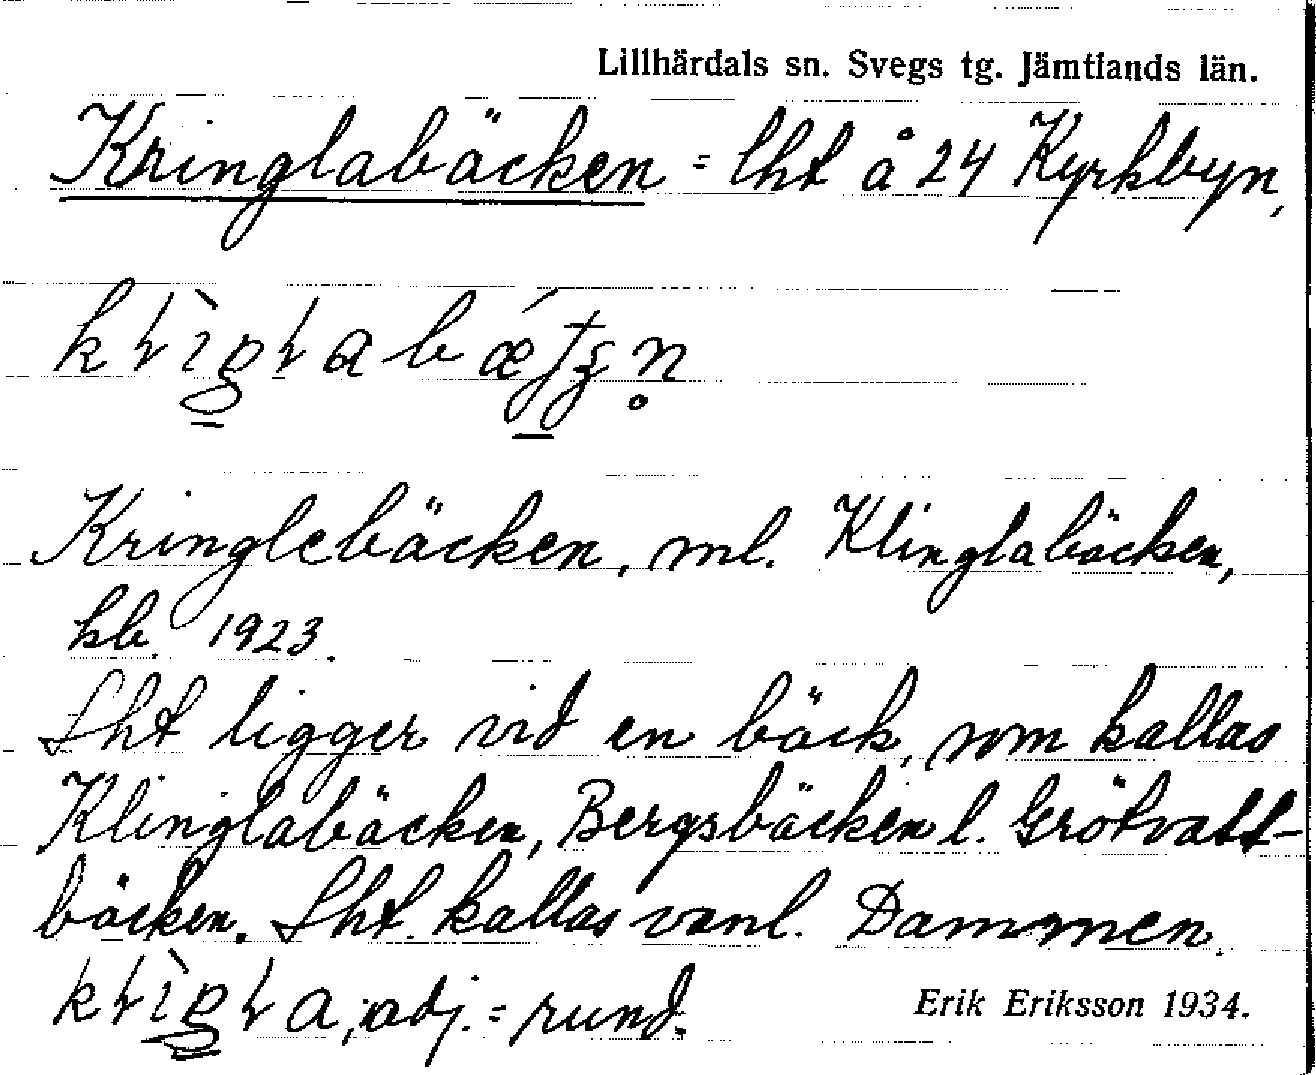 Lillhärdals sn. Svegs tg. Jämtlands län.
Kringlabäcken = lht å 24 Kyrkbyn,
Kringlebäcken, ml. Klinglabäcken,
kb. 1923.
Lht ligger vid en bäck, som kallas
Klinglabäcken, Bergsbäcken l. Grötvatt-
bäcken. Lht. kallas vanl. Dammen.
adj. = rund.
Erik Eriksson 1934.